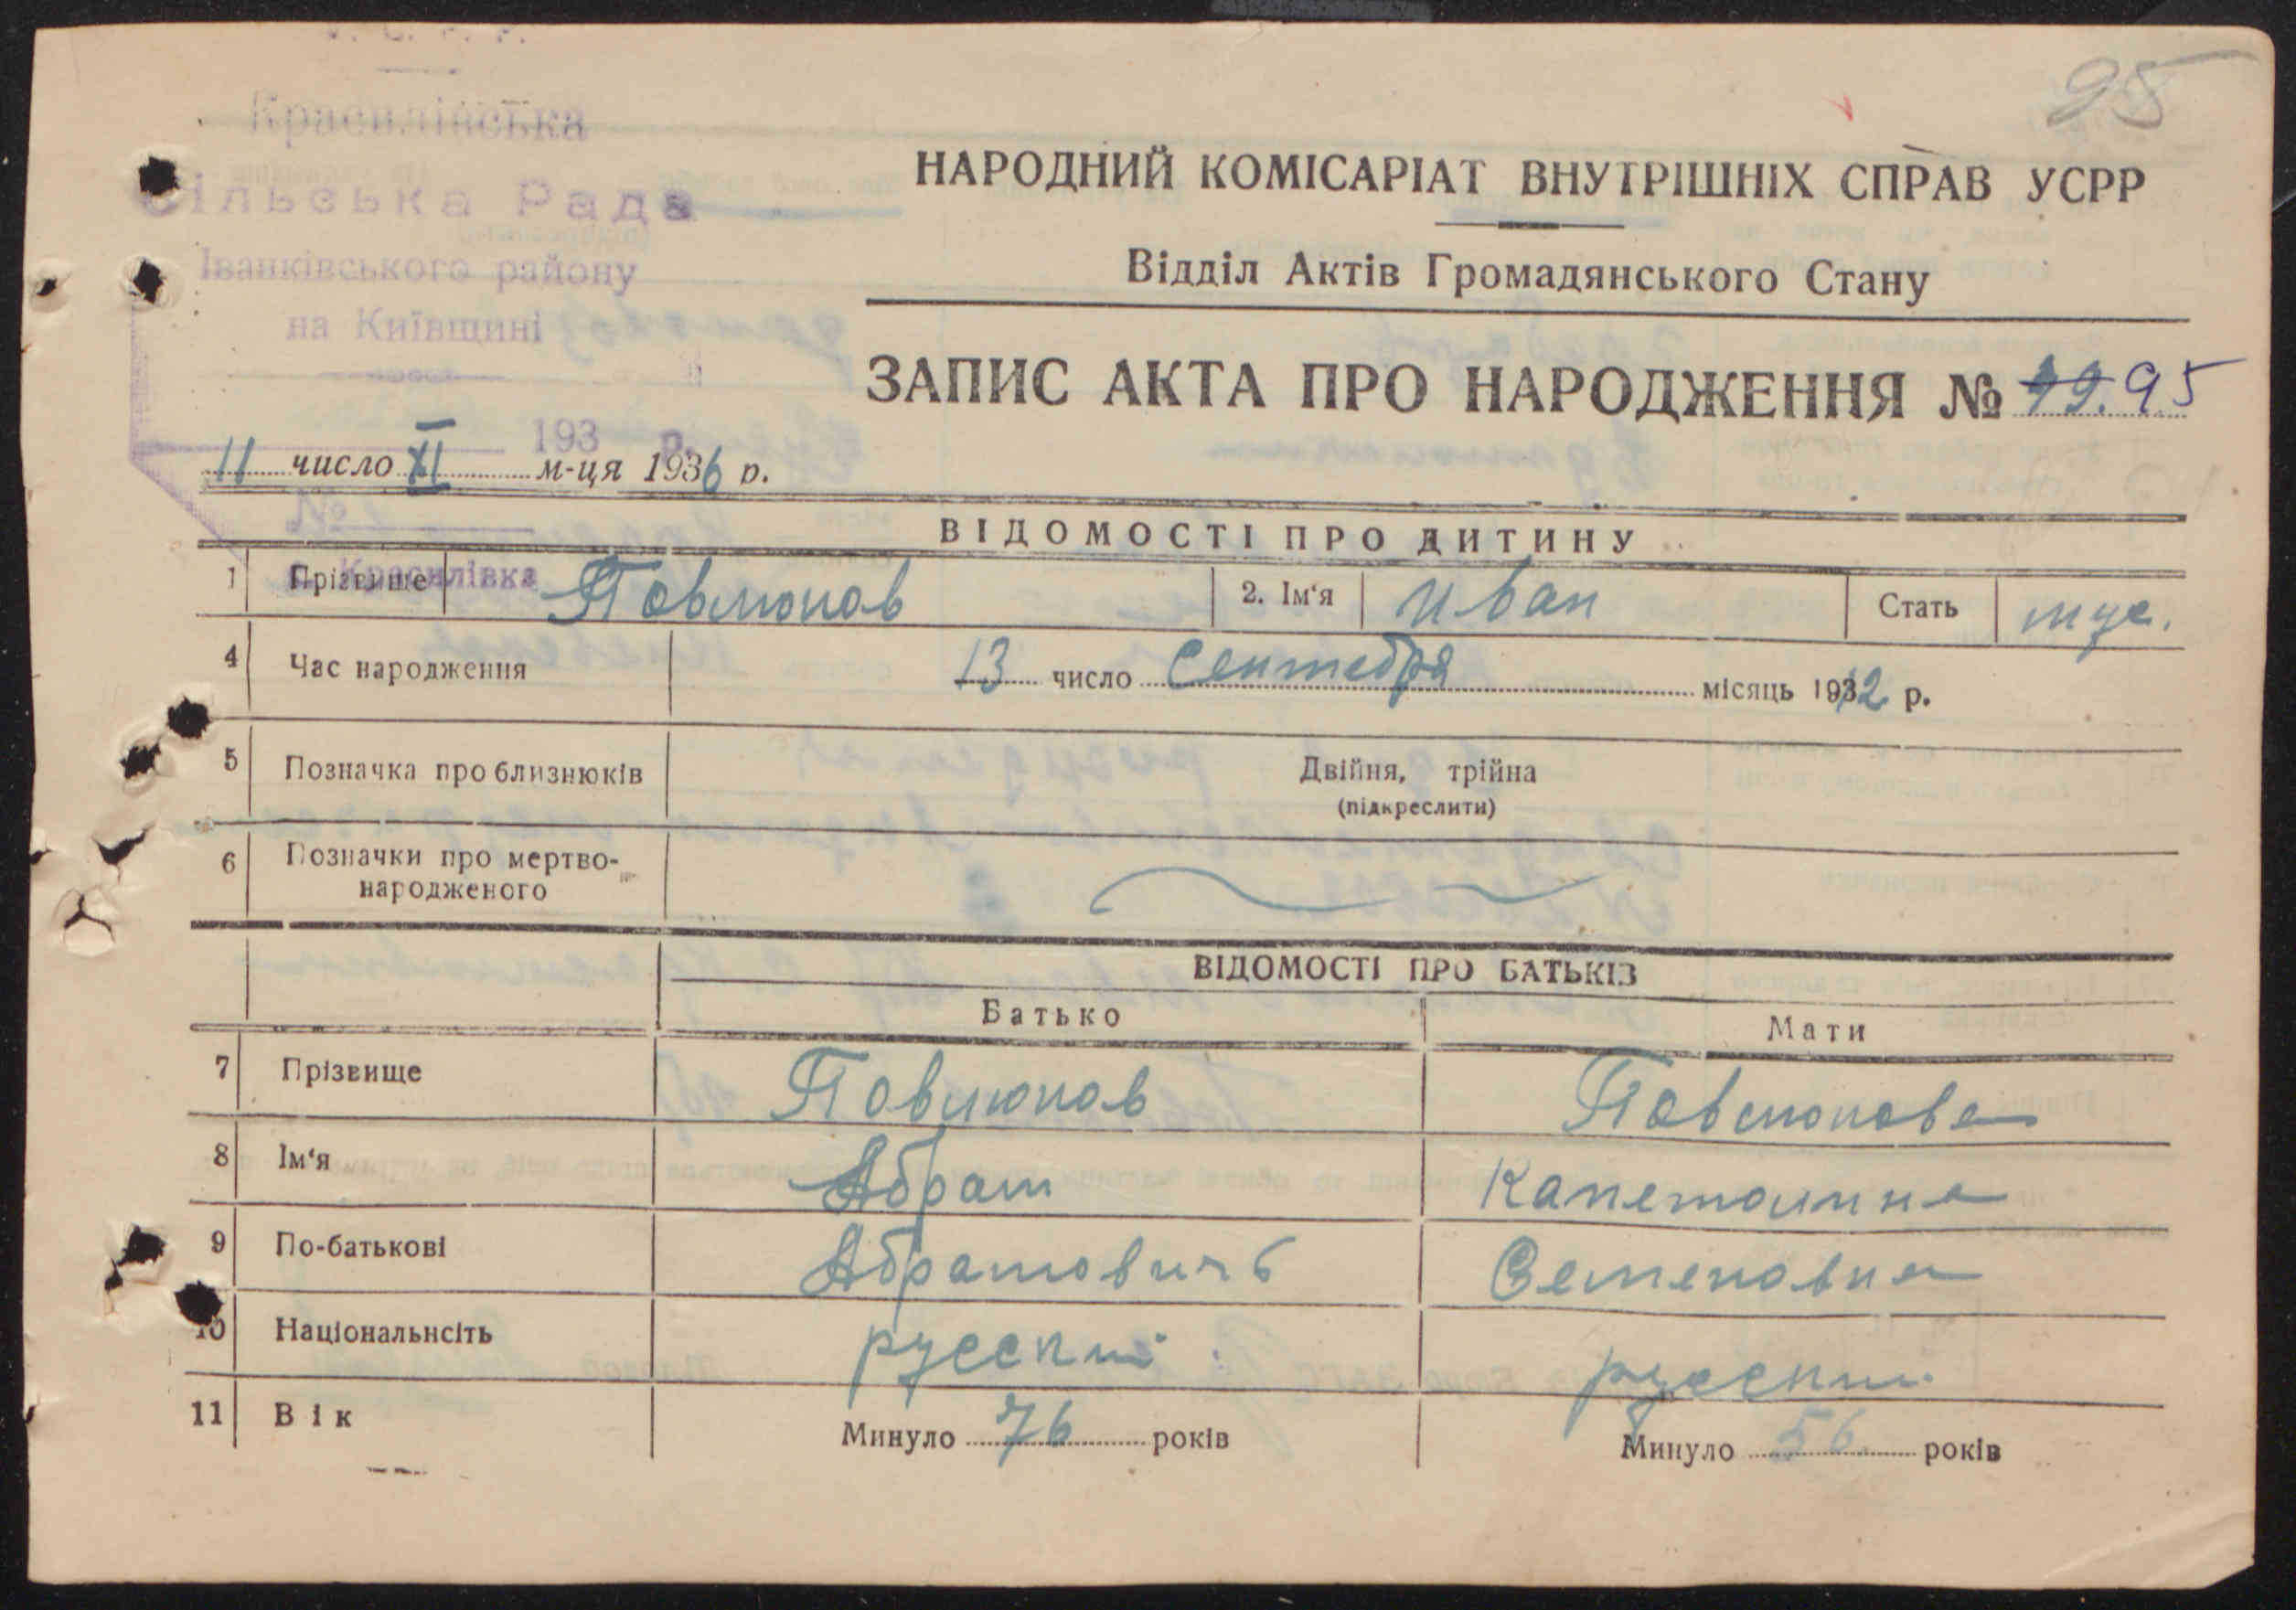 95
Красилівська
Сільська Рада
Іванківського району
на Київщині
193 р.
№
с. Красилівка
НАРОДНИЙ КОМІСАРІАТ ВНУТРІШНІХ СПРАВ УСРР
Відділ Актів Громадянського Стану
ЗАПИС АКТА ПРО НАРОДЖЕННЯ № 95
11 число XI м-ця 1936 р.
ВІДОМОСТІ ПРО ДИТИНУ
1 Прізвище Повлюков 2. Ім‘я Иван Стать муж.
4 Час народження 13 число Сентебря місяць 1912 р.
5 Позначка про близнюків Двійня, трійна
(підкреслити)
6 Позначки про мертво-
народженого
ВІДОМОСТІ ПРО БАТЬКІВ
Батько Мати
7 Прізвище Повлюков Повлюкова
8 Ім‘я Абрам Капеталина
9 По-батькові Абрамовичь Семеновна
10 Національнсіть русский русский
11 Вік Минуло 76 років Минуло 56 років